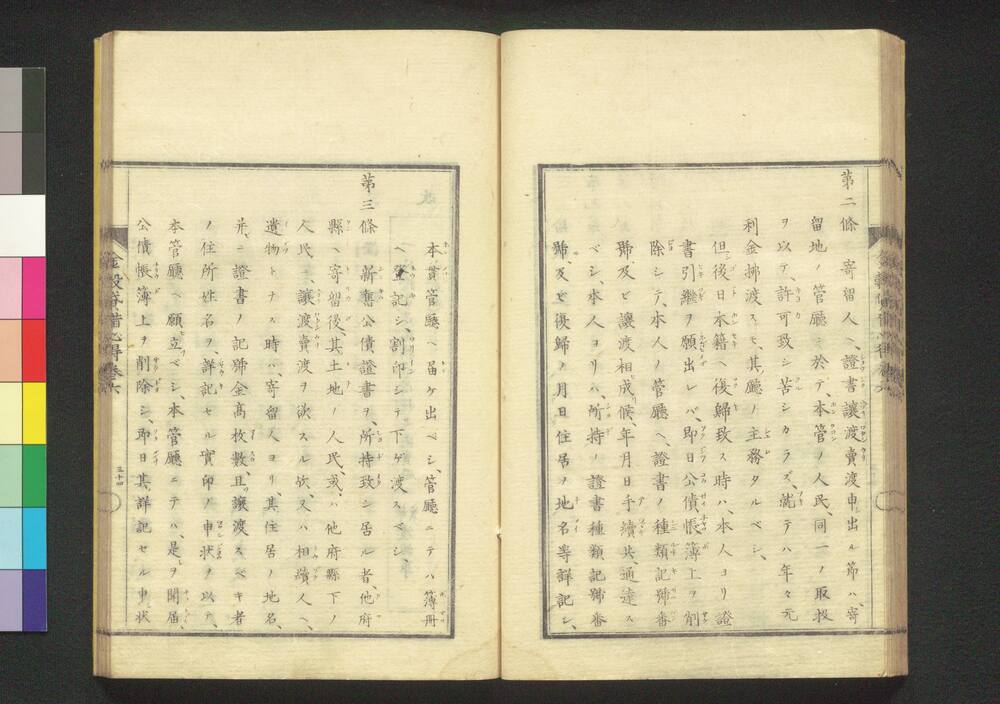 第二條 寄留人ヘ、證書讓渡賣渡申出ル節ハ、寄
留地ノ管廳ニ於テ、本管ノ人民、同一ノ取扱
ヲ以テ、許可致シ苦シカラズ、就テハ年々元
利金拂渡スモ、其廳ノ主務タルベシ、
但後日本籍ヘ復歸致ス時ハ、本人ヨリ證
書引繼ヲ願出レバ、即日公債帳簿上ヲ削
除シテ、本人ノ管廳ヘ、證書ノ種類記號番
號、及ビ讓渡相成候、年月日手續共、通達ス
ベシ、本人ヨリハ、所持ノ證書種類記號番
號、及ビ復歸ノ月日住居ノ地名等詳記シ、
本貫管廳ヘ屆ケ出ベシ、管廳ニテハ簿册
ヘ登記シ、割印シテ下ゲ渡スベシ、
第三條 新舊公債證書ヲ、所持致シ居ル者、他府
縣ヘ寄留後、其土地ノ人民、或ハ他府縣下ノ
人民ヘ、讓渡賣渡ヲ欲スル歟、又ハ相續人ヘ、
遺物トナス時ハ、寄留人ヨリ、其住居ノ地名、
并ニ證書ノ記號金高枚數、且讓渡スベキ者
ノ住所姓名ヲ、詳記セル實印ノ申狀ヲ以テ、
本管廳ヘ願立ベシ、本管廳ニテハ、是ヲ聞屆、
公債帳簿上ヲ削除シ、即日其詳記セル申狀
三十四